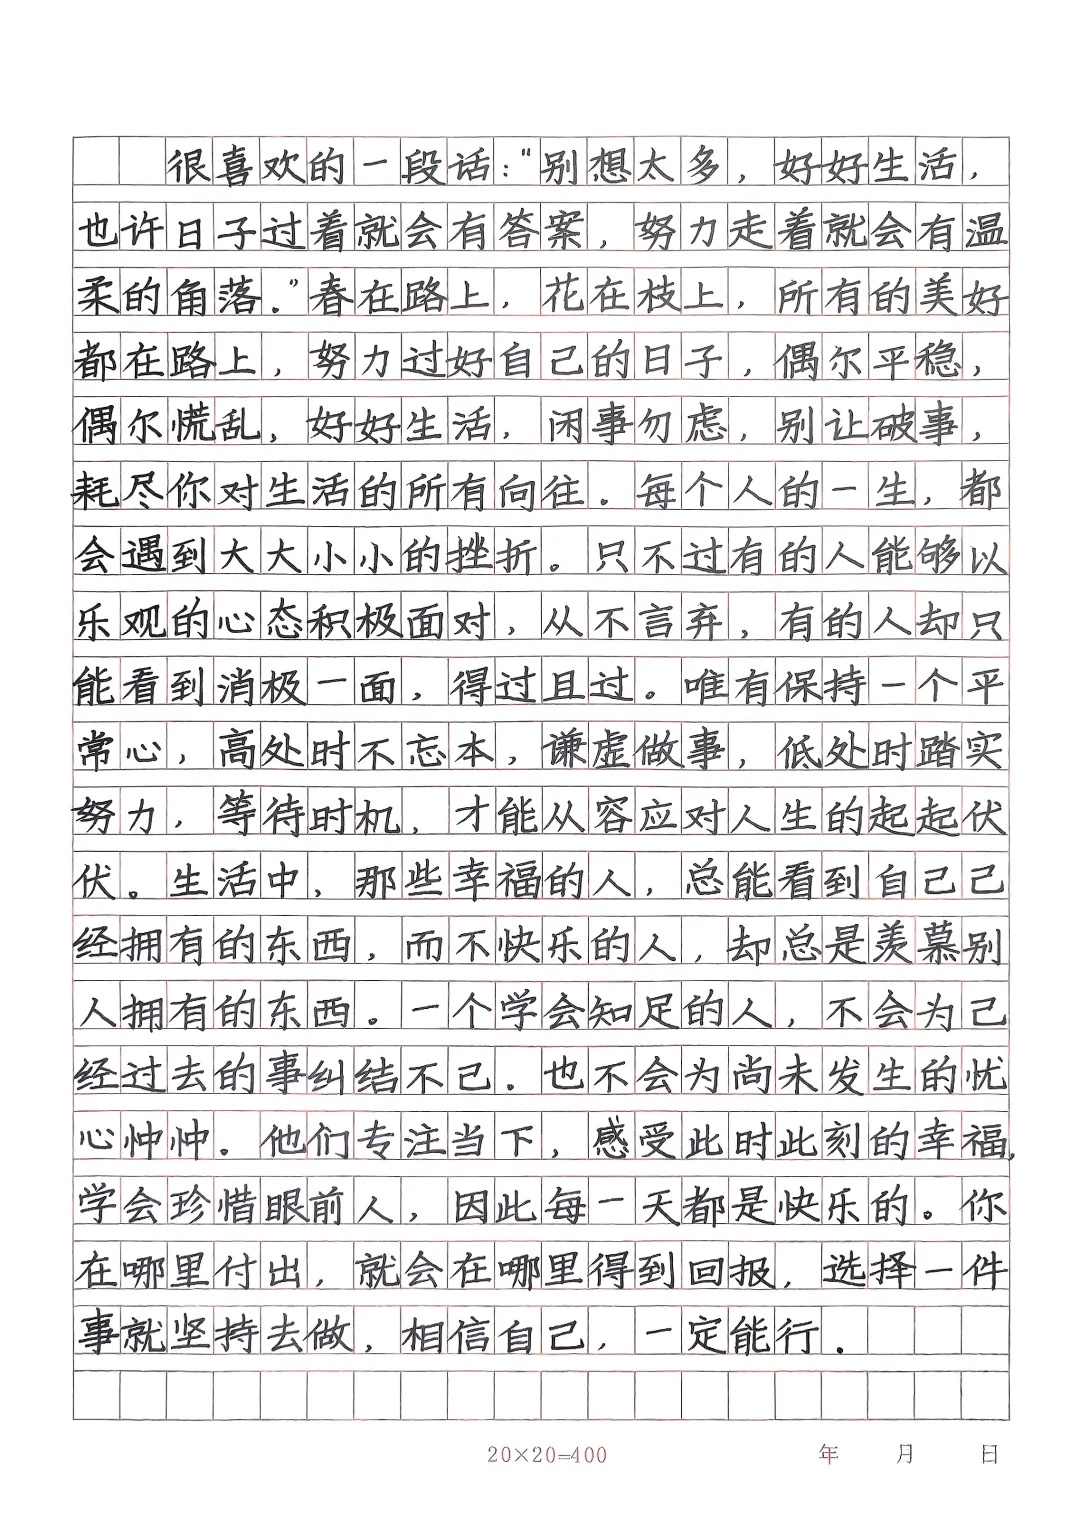 很喜欢的一段话:“别想太多,好好生活,
也许日子过着就会有答案,努力走着就会有温
柔的角落.”春在路上,花在枝上,所有的美好
都在路上,努力过好自己的日子,偶尔平稳,
偶尔慌乱,好好生活,闲事勿虑,别让破事,
耗尽你对生活的所有向往.每个人的一生,都
会遇到大大小小的挫折。只不过有的人能够以
乐观的心态积极面对,从不言弃,有的人却只
能看到消极一面,得过且过。唯有保持一个平
常心,高处时不忘本,谦虚做事,低处时踏实
努力,等待时机,才能从容应对人生的起起伏
伏。生活中,那些幸福的人,总能看到自己己
经拥有的东西,而不快乐的人,却总是羡慕别
人拥有的东西。一个学会知足的人,不会为己
经过去的事纠结不己.也不会为尚未发生的忧
心忡忡。他们专注当下,感受此时此刻的幸福,
学会珍惜眼前人,因此每一天都是快乐的。你
在哪里付出,就会在哪里得到回报,选择一件
事就坚持去做,相信自己,一定能行.
20×20=400 年 月 日